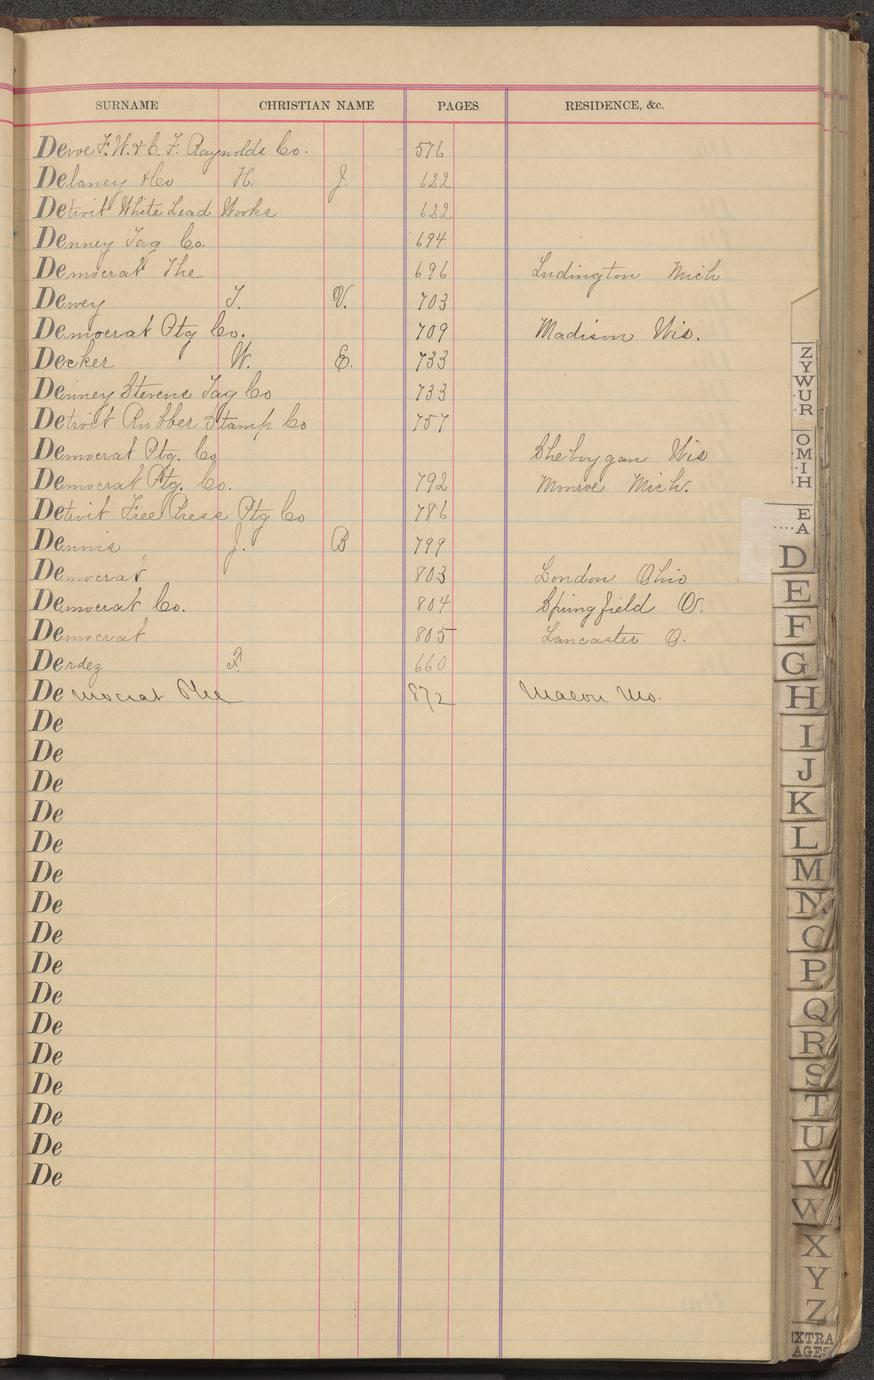 SURNAME CHRISTIAN NAME PAGES RESIDENCE, &c.
Devoe F. W. & C. T. Raynolds Co. 576
Delaney & Co H. J. 622
Detroit White Lead Works 622
Denney Tag Co. 694
Democrat The 696 Ludington Mich
Dewey T. V. 703
Democrat Ptg Co. 709 Madison Wis.
Decker W. E. 733
Denney Stevens Tag Co 733
Detroit Rubber Stamp Co 757
Democrat Ptg. Co Sheboygan Wis
Democrat Ptg. Co. 792 Monroe Mich.
Detroit Free Press Ptg Co 786
Dennis J. B 799
Democrat 803 London Ohio
Democrat Co. 804 Springfield O.
Democrat 805 Lancaster O.
Derdez 660
Democrat The 872 Macon Mo.
De
De
De
De
De
De
De
De
De
De
De
De
De
De
De
De
ZYWUR
OMIH
EA
D
E
F
G
H
I
J
K
L
M
N
O
P
Q
R
S
T
U
V
W
X
Y
Z
EXTRA
PAGES